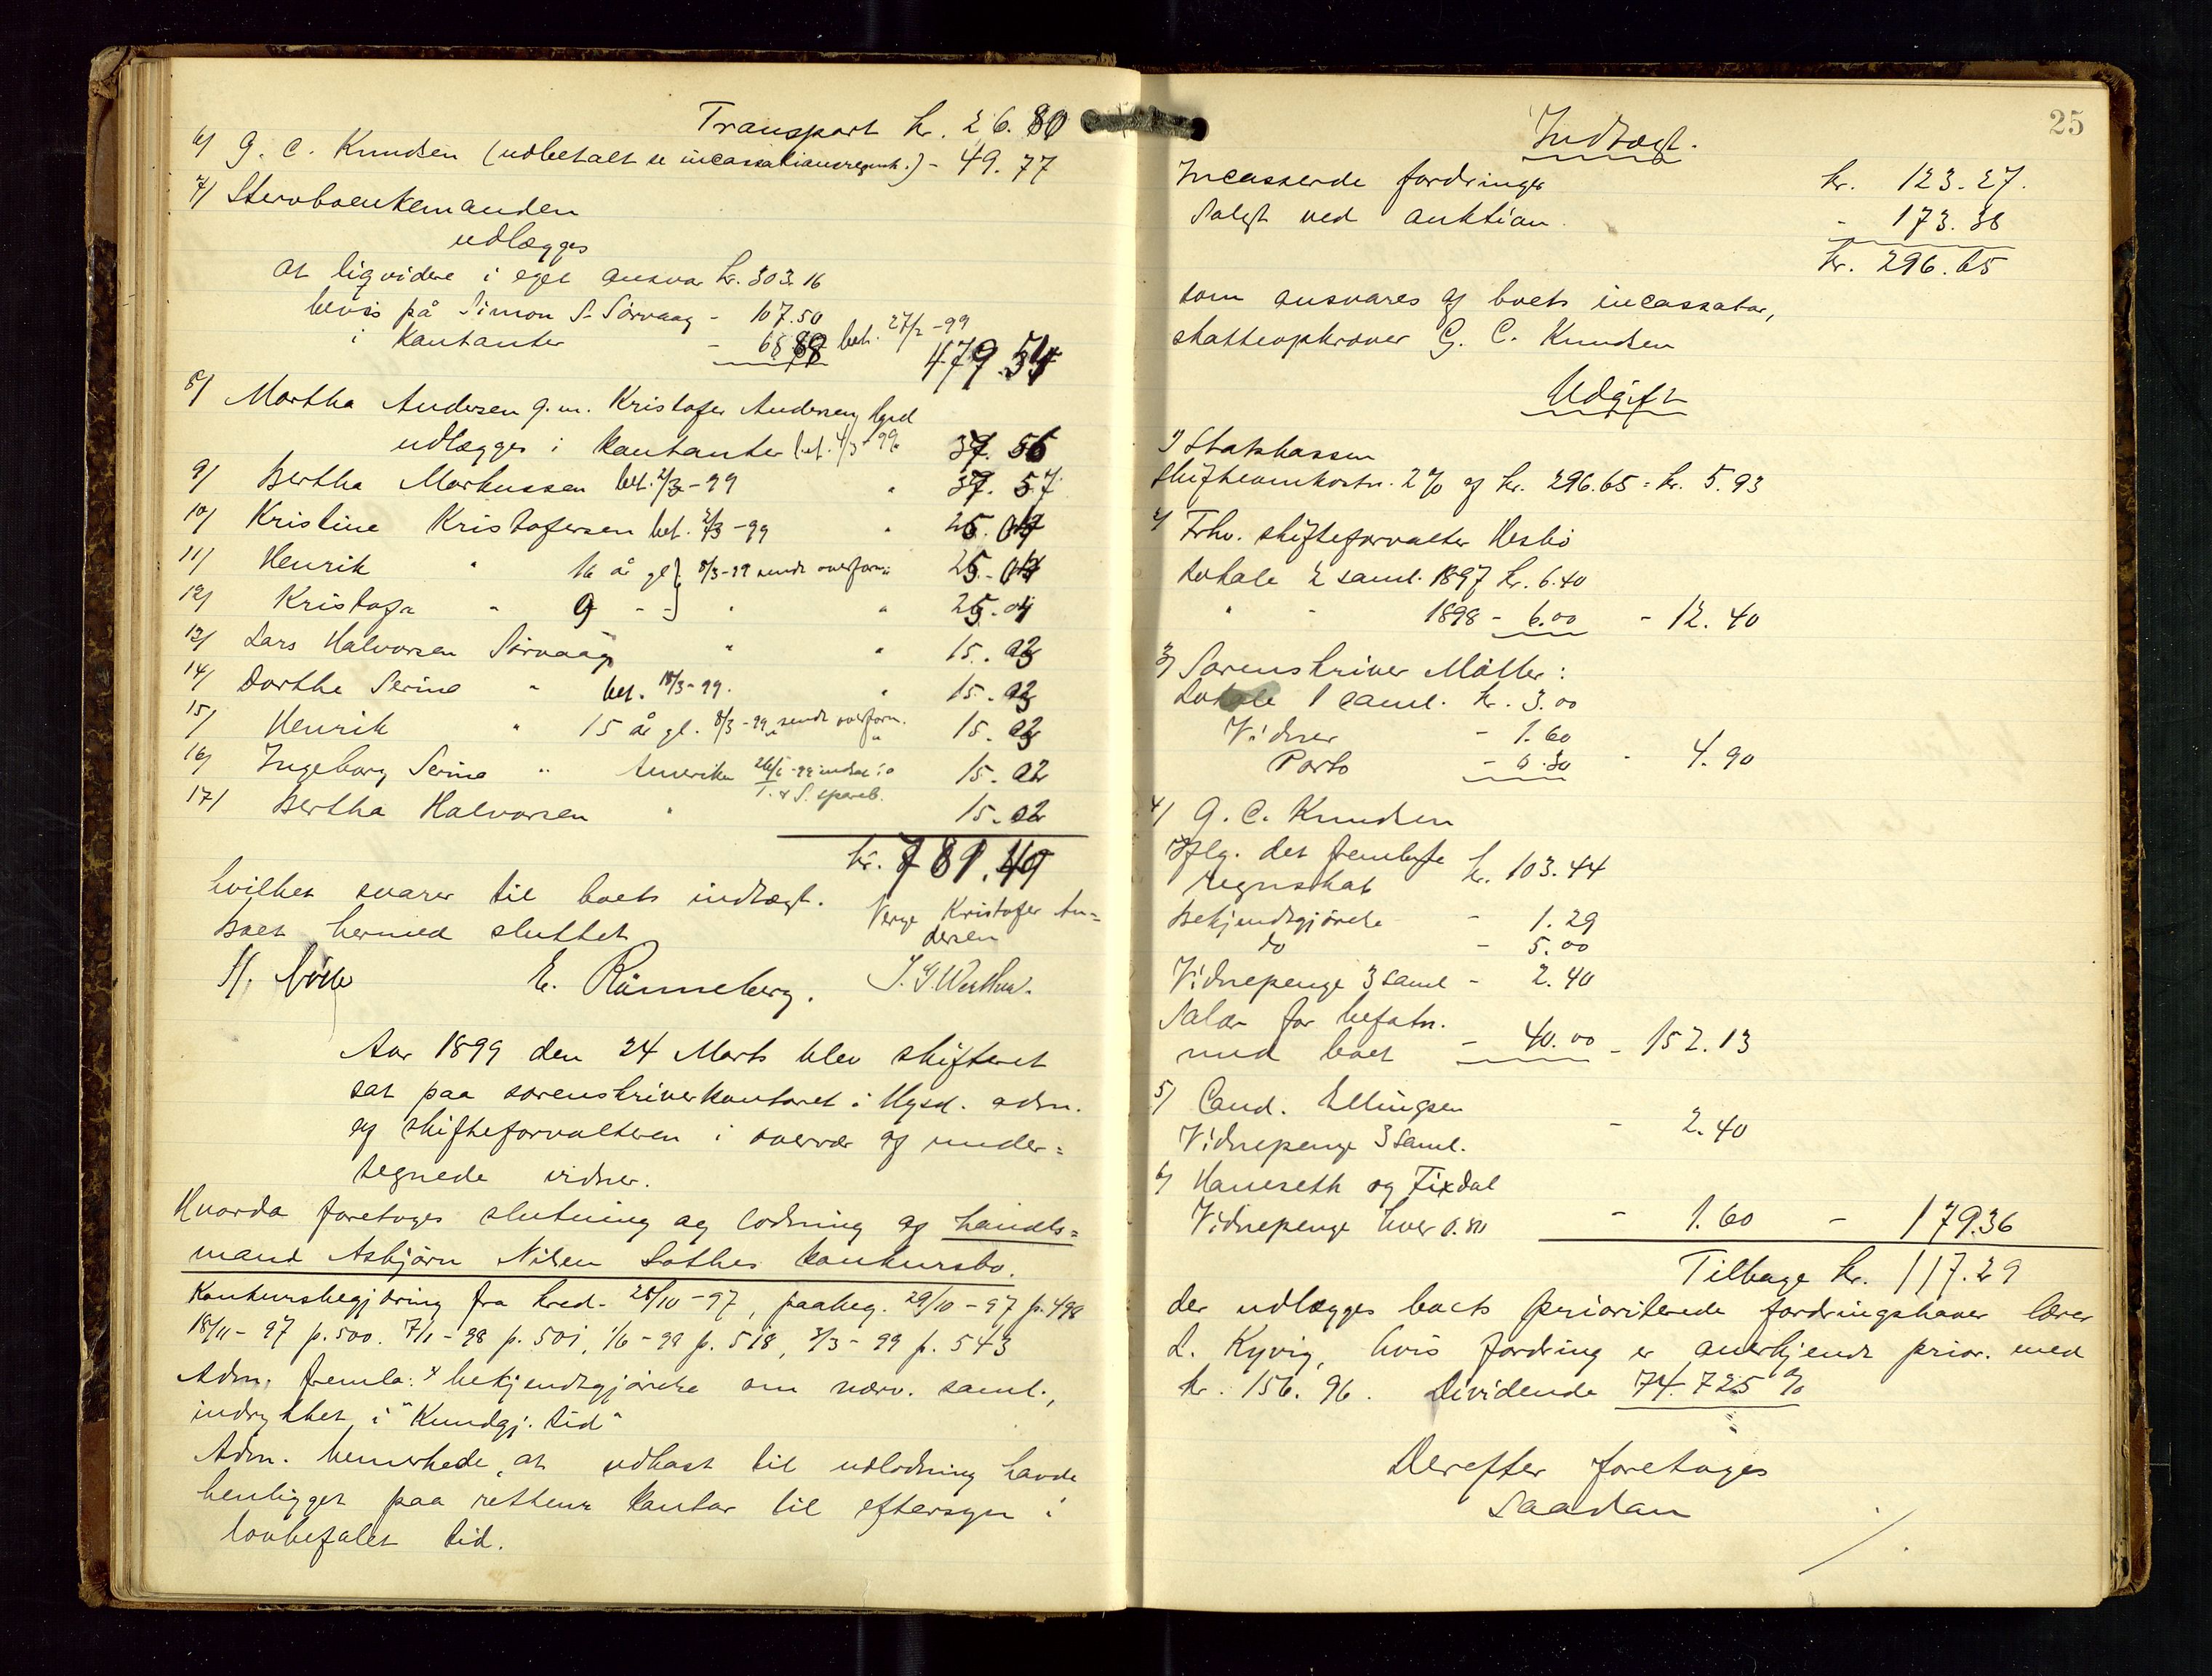 Transport kr. 26.80
6/ G. C. Knudsen (udbetalt se incassationsregnsk.) - 49.77
7/ Stervboenkemanden
udlægges
at liqvidere i eget ansvar kr. 303.16
bevis på Simon S. Sørvaag - 107.50
i kontanter - 68.88 bet. 27/2 -99
479.54
8/ Martha Andersen g. m. Kristofer Andersen, Hgsd
udlægges i kontanter bet. 4/3 - 99 37.56
9/ Bertha Markussen bet. 2/3 - 99 " 37.57
10/ Kristine Kristofersen bet. 2/3 - 99 " 25.04
11/ Henrik " 16 år gl } 8/3 -99 sendt overform. 25.04
12/ Kristofa " 9 - - } " " 25.04
13/ Lars Halvorsen Sørvaag " " 15.02
14/ Dorthe Serine " bet. 18/3 - 99. " 15.02
15/ Henrik " 15 år gl. 8/3 -99 sendt overform. 15.02
16/ Ingeborg Serine " Amerika -99 indsat i 15.02
spareb.
17/ Bertha Halvorsen " 15.02
kr. 781.49
hvilket svarer til boets indtægt.
Boet hermed sluttet
Verge Kristofer An=
dersen
E. Rønneberg.
Aar 1899 den 24 Marts blev skifteret
sat paa sorenskriverkontoret i Hgsd. adm.
af skifteforvalteren i overvær af under=
tegnede vidner.
Hvorda foretoges slutning og lodning af handels=
mand Asbjørn Nilsen Lothes konkursbo.
Konkursbegjæring fra kred. 28/10 -97, paabeg. 29/10 - 97 p. 498
18/11 - 97 p. 500. 7/1 - 98 p. 501, 1/6 - 98 p. 518, 3/3 - 99 p. 543
Adm. fremla: bekjendtgjørelse om nærv. saml.,
indrykket i "Kundgj. tid"
Adm. bemerkede, at udkast til udlodning havde
henligget paa rettens kontor til eftersyn i
lovbefalet tid.
25
Indtægt.
Incasserede fordringer kr. 123.27.
Solgt ved auktion - 173.38
kr. 296.65
som ansvares af boets incassator,
skatteopkræver G. C. Knudsen
Udgift
1/ Statskassen
skifteomkostn. 2% af kr. 296.65 = kr. 5.93
2/ Frhv. skifteforvalter Hesbø
Lokale 2 saml. 1897 kr. 6.40
" - 1898 - 6.00 - 12.40
3/ Sorenskriver Møller:
Lokale 1 saml. kr. 3.00
Vidner - 1.60
Porto - 0.30 - 4.90
4/ G. C. Knudsen
Iflg. det fremlagte
regnskab kr. 103.44
Bekjendtgjørelse - 1.29
do - 5.00
Vidnepenge 3 saml - 2.40
Salær for befatn.
med boet - 40.00 - 152.13
5/ Cand. Ellingsen
Vidnepenge 3 saml. - 2.40
6/ Haneseth og Fixdal
Vidnepenge hver 0.80 - 1.60 - 179.36
Tilbage kr. 117.29
der udlægges boets prioriterede fordringshaver lærer
L. Kyvig, hvis fordring er anerkjendt prior. med
kr. 156.96. Dividende 74.725 %
Derefter foretoges
saadan